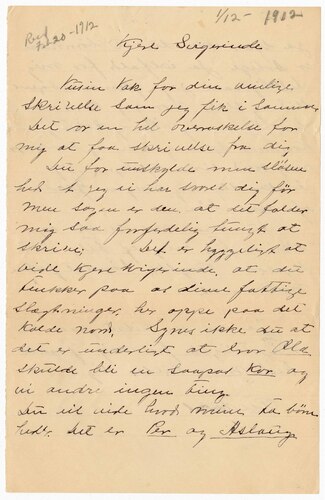 Recd
Feb 20 - 1912
1/12 - 1912
Kjere Svigerinde
Tusin Tak for den venlige
skrivelse som jeg fik i Sommer
Det var en hel overraskelse for
mig at faa skrivelse fra dig
Du for unskylde men
hed at jeg ikke har svart dig før
men sagen er den, at det falder
mig saa forferdelig tungt at
skrive; Det er hyggeligt at
vide kjere svigerinde, at du
tenkker paa os dine fattige
slægtninger, her oppe paa det
kolde nord. Synes ikke du at
det er underligt at bror Ola
skulde bli en saapas Kar og
vi andre ingen ting.
Du vil vide hvad mine to børn
heder. Det er Per og Aslaug